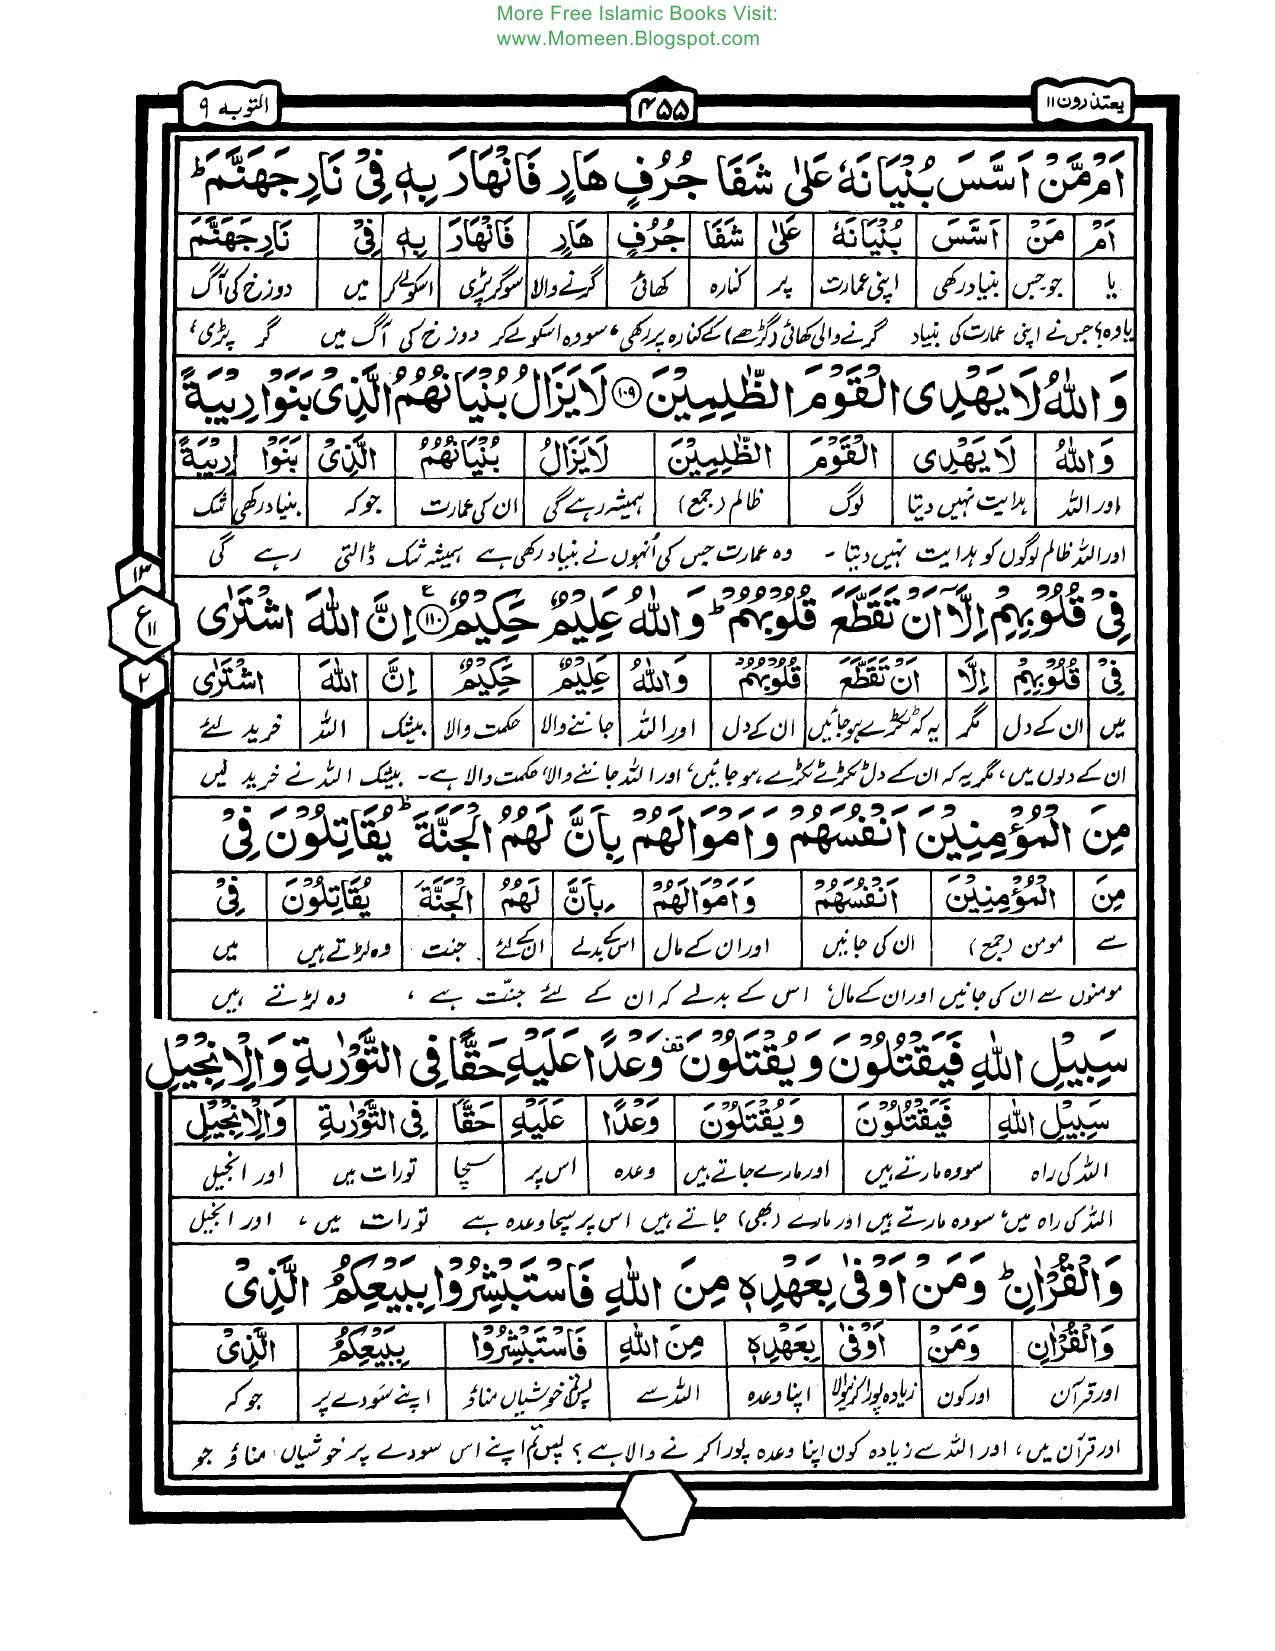 More Free Islamic Books Visit:
www.Momeen.Blogspot.com
یعتذرون ۱۱
۴۵۵
التوبه ۹
اَمْ مَّنْ اَسَّسَ بُنْیَانَهٗ عَلٰی شَفَا جُرُفٍ هَارٍ فَانْهَارَ بِهٖ فِیْ نَارِ جَهَنَّمَ ؕ
اَمْ مَنْ اَسَّسَ بُنْیَانَهٗ عَلٰی شَفَا جُرُفٍ هَارٍ فَانْهَارَ بِهٖ فِیْ نَارِ جَهَنَّمَ
یا جو۔جس بنیاد رکھی اپنی عمارت پر کنارہ کھائی گرنے والا سو گر پڑی اسکو لے کر میں دوزخ کی آگ
یا وہ؟ جس نے اپنی عمارت کی بنیاد گرنے والی کھائی (گڑھے) کے کنارہ پر رکھی، سو وہ اسکو لے کر دوزخ کی آگ میں گر پڑی،
وَاللّٰهُ لَا یَهْدِی الْقَوْمَ الظّٰلِمِیْنَ ۱۰۹ لَا یَزَالُ بُنْیَانُهُمُ الَّذِیْ بَنَوْا رِیْبَةً
وَاللّٰهُ لَا یَهْدِی الْقَوْمَ الظّٰلِمِیْنَ لَا یَزَالُ بُنْیَانُهُمُ الَّذِیْ بَنَوْا رِیْبَةً
اور اللہ ہدایت نہیں دیتا لوگ ظالم (جمع) ہمیشہ رہے گی ان کی عمارت جو کہ بنیاد رکھی شک
اور اللہ ظالم لوگوں کو ہدایت نہیں دیتا ۔ وہ عمارت جس کی اُنہوں نے بنیاد رکھی ہے ہمیشہ شک ڈالتی رہے گی
۱۳
ع
۱۱
۲
فِیْ قُلُوْبِهِمْ اِلَّاۤ اَنْ تَقَطَّعَ قُلُوْبُهُمْ ؕ وَاللّٰهُ عَلِیْمٌ حَكِیْمٌ ۱۱۰ اِنَّ اللّٰهَ اشْتَرٰی
فِیْ قُلُوْبِهِمْ اِلَّا اَنْ تَقَطَّعَ قُلُوْبُهُمْ وَاللّٰهُ عَلِیْمٌ حَكِیْمٌ اِنَّ اللّٰهَ اشْتَرٰی
میں ان کے دل مگر یہ کہ ٹکڑے ہو جائیں ان کے دل اور اللہ جاننے والا حکمت والا بیشک اللہ خرید لئے
ان کے دلوں میں، مگر یہ کہ ان کے دل ٹکڑے ٹکڑے ہو جائیں، اور اللہ جاننے والا، حکمت والا ہے۔ بیشک اللہ نے خرید لیں
مِنَ الْمُؤْمِنِیْنَ اَنْفُسَهُمْ وَاَمْوَالَهُمْ بِاَنَّ لَهُمُ الْجَنَّةَ ؕ یُقَاتِلُوْنَ فِیْ
مِنَ الْمُؤْمِنِیْنَ اَنْفُسَهُمْ وَاَمْوَالَهُمْ بِاَنَّ لَهُمُ الْجَنَّةَ یُقَاتِلُوْنَ فِیْ
سے مومن (جمع) ان کی جانیں اور ان کے مال اس کے بدلے ان کے لئے جنت وہ لڑتے ہیں میں
مومنوں سے ان کی جانیں اور ان کے مال، اس کے بدلے کہ ان کے لئے جنّت ہے ، وہ لڑتے ہیں
سَبِیْلِ اللّٰهِ فَیَقْتُلُوْنَ وَیُقْتَلُوْنَ قف وَعْدًا عَلَیْهِ حَقًّا فِی التَّوْرٰىةِ وَالْاِنْجِیْلِ
سَبِیْلِ اللّٰهِ فَیَقْتُلُوْنَ وَیُقْتَلُوْنَ وَعْدًا عَلَیْهِ حَقًّا فِی التَّوْرٰىةِ وَالْاِنْجِیْلِ
اللہ کی راہ سو وہ مارتے ہیں اور مارے جاتے ہیں وعدہ اس پر سچا تورات میں اور انجیل
اللہ کی راہ میں، سو وہ مارتے ہیں اور مارے (بھی) جاتے ہیں اس پر سچا وعدہ ہے تورات میں، اور انجیل
وَالْقُرْاٰنِ ؕ وَمَنْ اَوْفٰی بِعَهْدِهٖ مِنَ اللّٰهِ فَاسْتَبْشِرُوْا بِبَیْعِكُمُ الَّذِیْ
وَالْقُرْاٰنِ وَمَنْ اَوْفٰی بِعَهْدِهٖ مِنَ اللّٰهِ فَاسْتَبْشِرُوْا بِبَیْعِكُمُ الَّذِیْ
اور قرآن اور کون زیادہ پورا کرنیوالا اپنا وعدہ اللہ سے پس تم خوشیاں مناؤ اپنے سودے پر جو کہ
اور قرآن میں، اور اللہ سے زیادہ کون اپنا وعدہ پورا کرنے والا ہے؟ پس تم اپنے اس سودے پر خوشیاں مناؤ جو